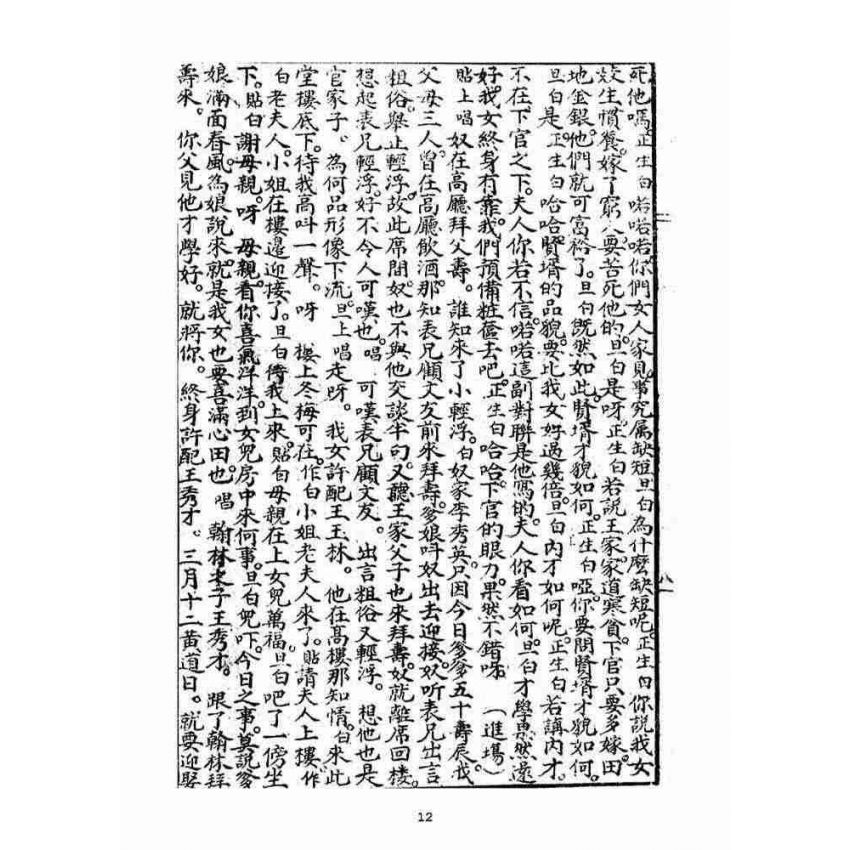 死他嗎。正生白喏喏喏你們女人家見事究属缺短旦白為什麼缺短呢。正生白你說我女
姣生慣養。嫁了窮人要苦死他的。旦白是呀。正生白若說王家。家道寒貧。下官只要多嫁田
地金銀。他們就可富裕了。旦白既然如此。賢壻才貌如何。正生白啞。你要問賢壻才貌如何。
旦白是。正生白哈哈賢壻的品貌。要比我女好過幾倍。旦白內才如何呢。正生白若講內才。
不在下官之下。夫人你若不信喏喏這副對聯是他寫的。夫人你看如何。旦白才學果然遠
好。我女終身有靠。我們預備粧奩去吧。正生白哈哈。下官的眼力。果然不錯呀。（進場）
貼上唱奴在高廳拜父壽。誰知來了小輕浮。白奴家李秀英。只因今日爹爹五十壽辰。我
父母三人。曾在高廳飲酒。那知表兄顧文友前來拜壽。爹娘呌奴出去迎接。奴听表兄出言
粗俗。舉止輕浮。故此席間。奴也不與他交談半句。又聽王家父子也來拜壽。奴就離席回楼。
想起表兄輕浮。好不令人可嘆也。唱 可嘆表兄顧文友。出言粗俗又輕浮。想他也是
官家子。為何品形像下流。旦上唱走呀。我女許配王玉林。他在高樓那知情。白來此
堂樓底下。待我高呌一聲。呀 樓上冬梅可在。作白小姐老夫人來了。貼請夫人上樓。作
白老夫人。小姐在樓邊迎接了。旦白待我上來。貼白母親在上女兒萬福。旦白吧了一傍坐
下。貼白謝母親。呀 母親。看你喜氣洋洋。到女兒房中來何事。旦白兒吓。今日之事。莫說爹
娘滿面春風。為娘說來。就是我女也要喜滿心田也。唱 翰林之子王秀才。跟了翰林拜
壽來。你父見他才學好。就將你。終身許配王秀才。三月十二黃道日。就要迎娶
12